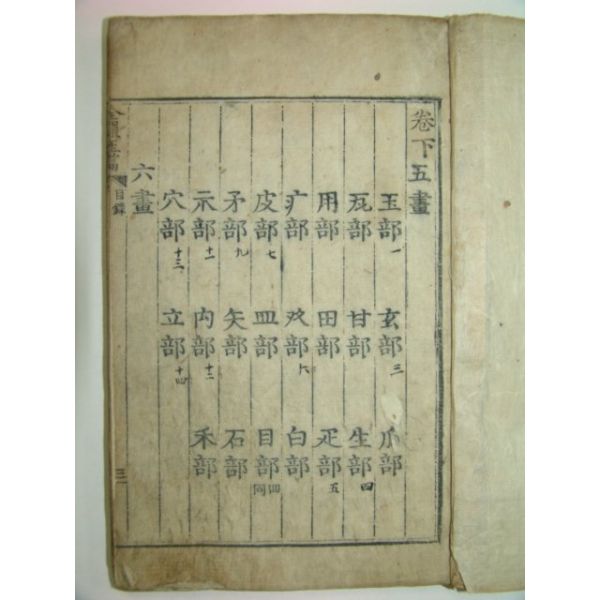 卷下五畫
玉部一 玄部三 瓜部
瓦部 甘部 生部四
用部 田部 疋部五
疒部 癶部六 白部
皮部七 皿部 目部罒同
矛部九 矢部 石部
示部十一 禸部十二 禾部
穴部十三 立部十四
六畫
目錄 三